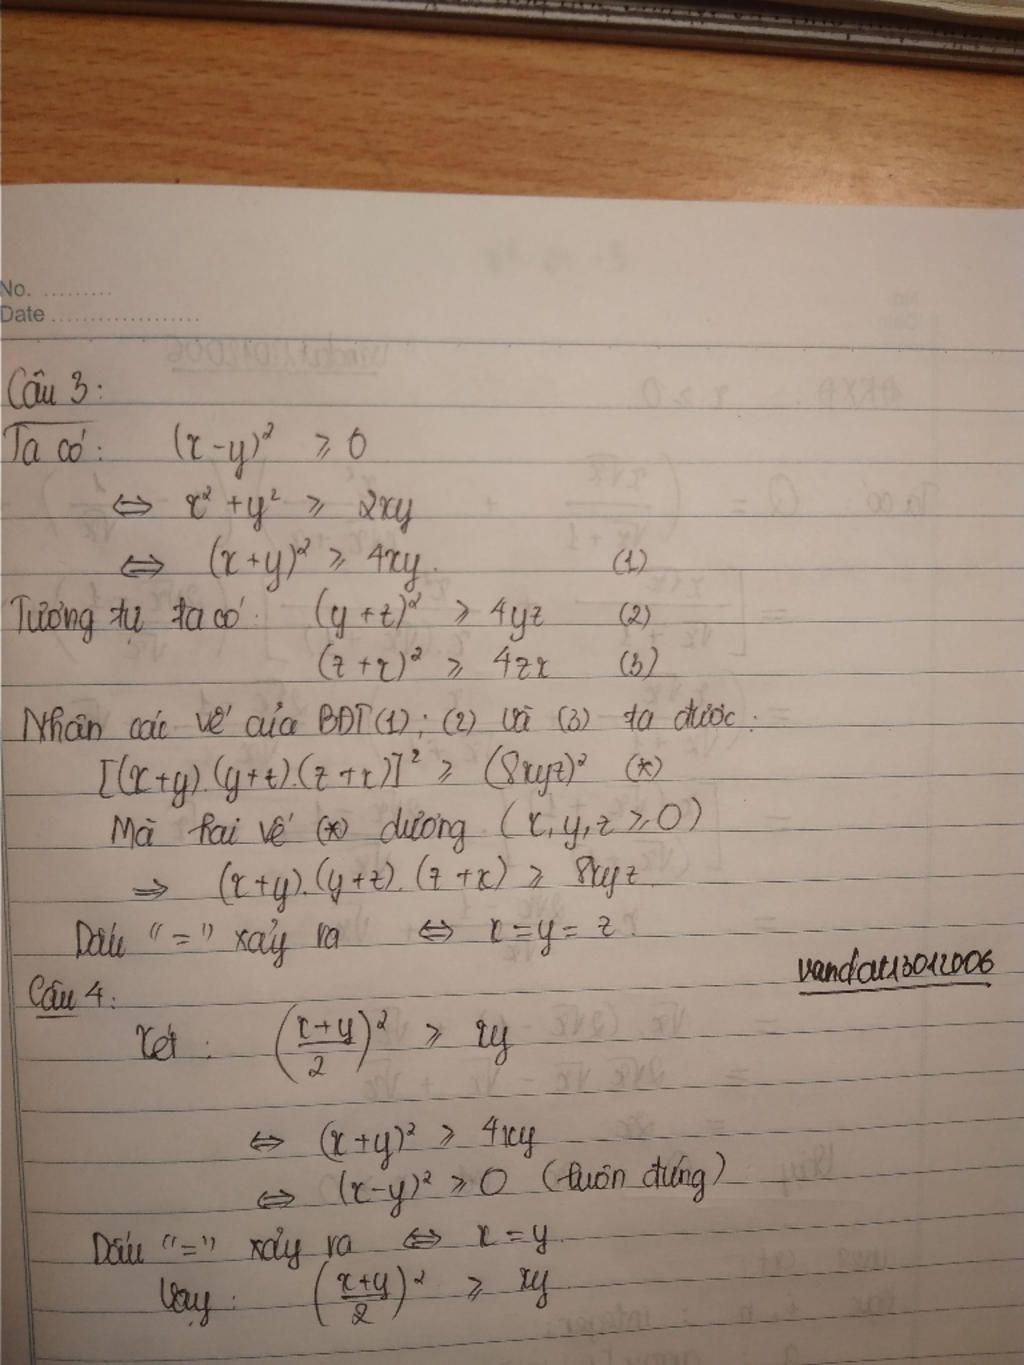 No. .........
Date ...................
Câu 3:
Ta có: (x-y)² ≥ 0
⇔ x² + y² ≥ 2xy
⇔ (x+y)² ≥ 4xy. (1)
Tương tự ta có: (y+z)² ≥ 4yz (2)
(z+x)² ≥ 4zx (3)
Nhân các vế của BĐT (1); (2) và (3) ta được:
[(x+y).(y+z).(z+x)]² ≥ (8xyz)² (*)
Mà hai vế (*) dương (x,y,z ≥ 0)
⇒ (x+y).(y+z).(z+x) ≥ 8xyz.
Dấu "=" xảy ra ⇔ x = y = z.
vandat13012006
Câu 4:
Xét: ((x+y)/2)² ≥ xy
⇔ (x+y)² ≥ 4xy
⇔ (x-y)² ≥ 0 (luôn đúng)
Dấu "=" xảy ra ⇔ x = y.
Vậy: ((x+y)/2)² ≥ xy